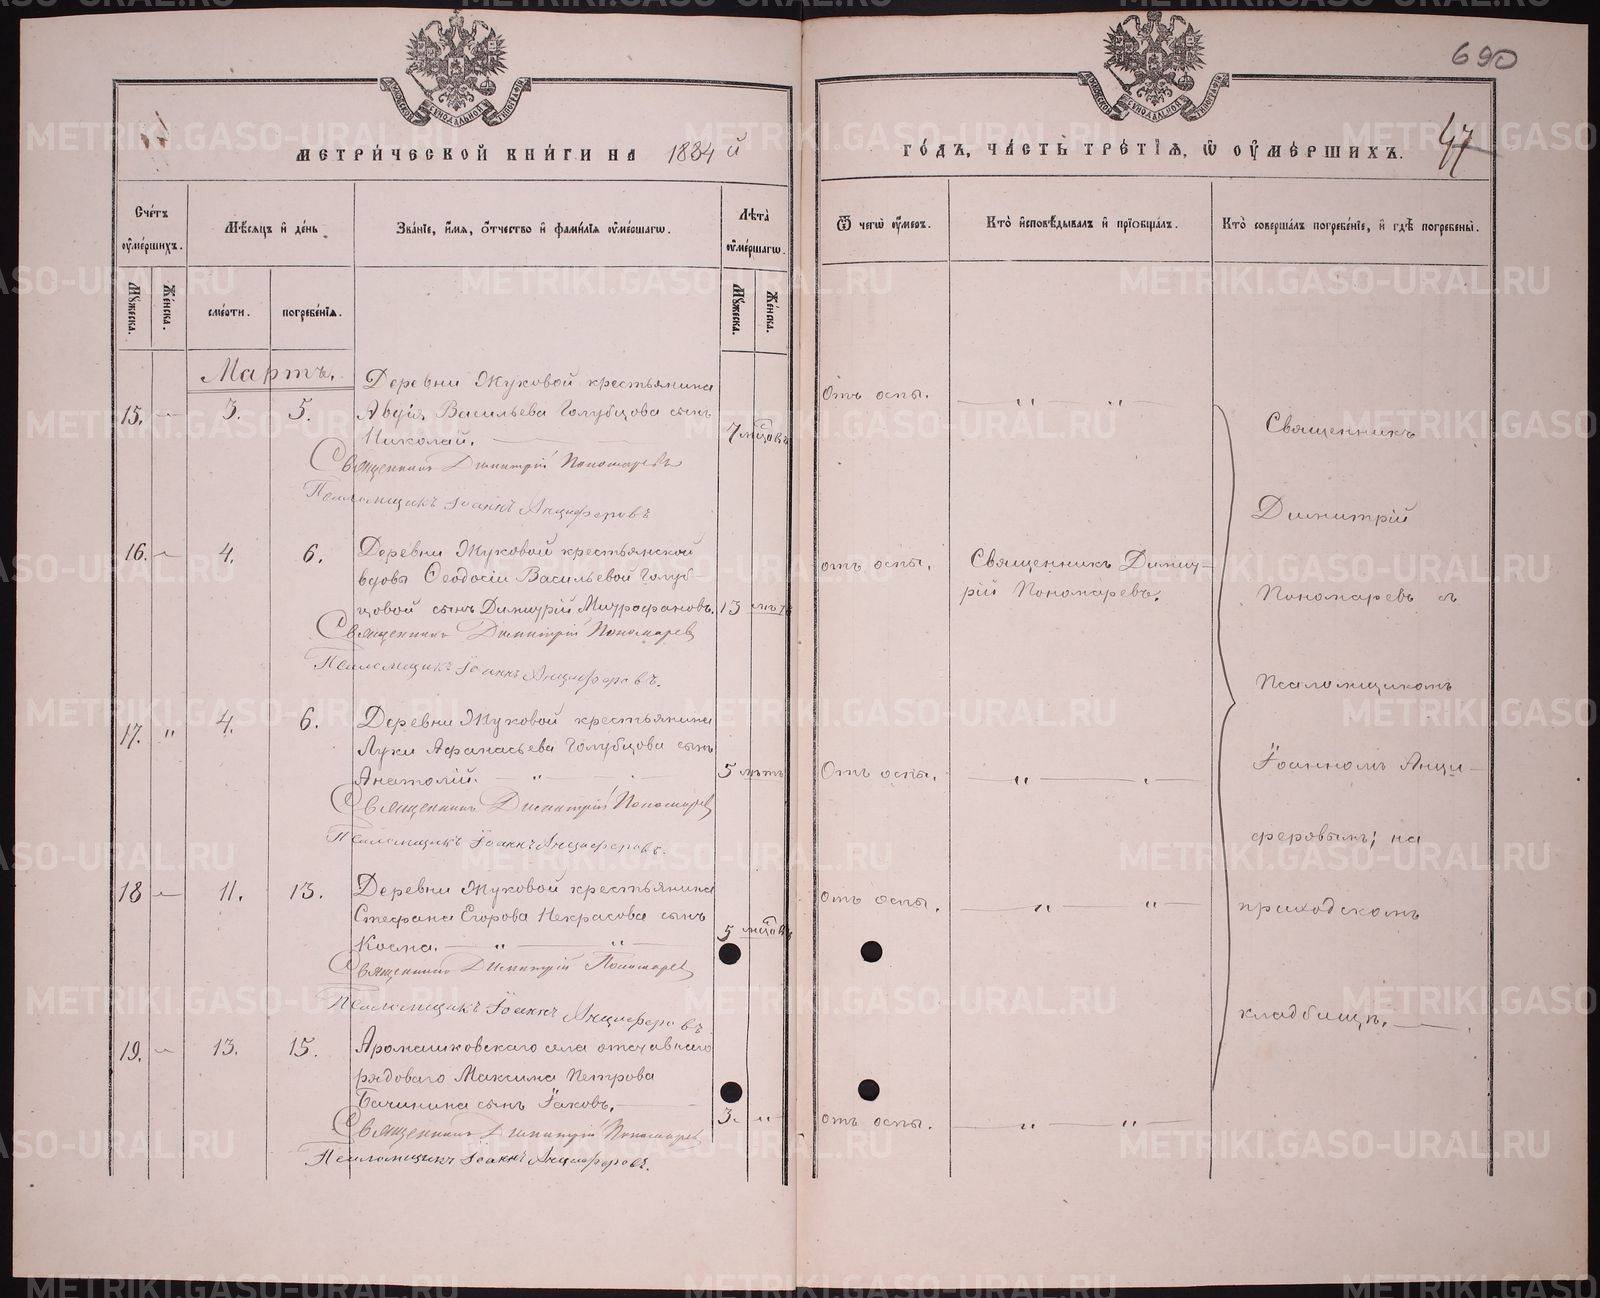 690
МЕТРИЧЕСКОЙ КНИГИ НА 1884 й
ГОДЪ, ЧАСТЬ ТРЕТІЯ, Ѿ ОУМЕРШИХЪ. 47
Счетъ оумершихъ.
Мѣсяцъ и день
Званіе, имя, отчество и фамилія оумершагѡ.
Лѣта оумершагѡ.
Ѿ чегѡ оумеръ.
Кто исповѣдывалъ и пріобщалъ.
Кто совершалъ погребеніе, и гдѣ погребены.
Мужеска.
Женска.
смерти.
погребенія.
Мужеска.
Женска.
Мартъ.
15. 3. 5. Деревни Жуковой крестьянина
Авдія Васильева Голубцова сынъ
Николай. 7 мѣсяцовъ Отъ оспы.
Священникъ Димитрій Пономаревъ
Псаломщикъ Іоаннъ Анциферовъ
16. 4. 6. Деревни Жуковой крестьянской
вдовы Ѳеодосіи Васильевой Голуб-
цовой сынъ Димитрій Митрофановъ. 13 лѣтъ отъ оспы. Священникъ Димит-
рій Пономаревъ.
Священникъ Димитрій Пономарев
Псаломщикъ Іоаннъ Анциферовъ.
17. " 4. 6. Деревни Жуковой крестьянина
Луки Аѳанасьева Голубцова сынъ
Анатолій. 5 лѣтъ Отъ оспы.
Священникъ Димитрій Пономарев
Псаломщикъ Іоаннъ Анциферовъ.
18 11. 13. Деревни Жуковой крестьянина
Стефана Егорова Некрасова сынъ
Косма. 5 мѣсяцовъ отъ оспы.
Священникъ Димитрій Пономарев
Псаломщикъ Іоаннъ Анциферовъ
19. 13. 15. Аромашковскаго села отставнаго
рядоваго Максима Петрова
Бачинина сынъ Іаковъ. 3. " отъ оспы.
Священникъ Димитрій Пономарев
Псаломщикъ Іоаннъ Анциферовъ.
Священникъ
Димитрій
Пономаревъ съ
Псаломщикомъ
Іоанномъ Анци-
феровымъ; на
приходскомъ
кладбищѣ.
METRIKI.GASO-URAL.RU